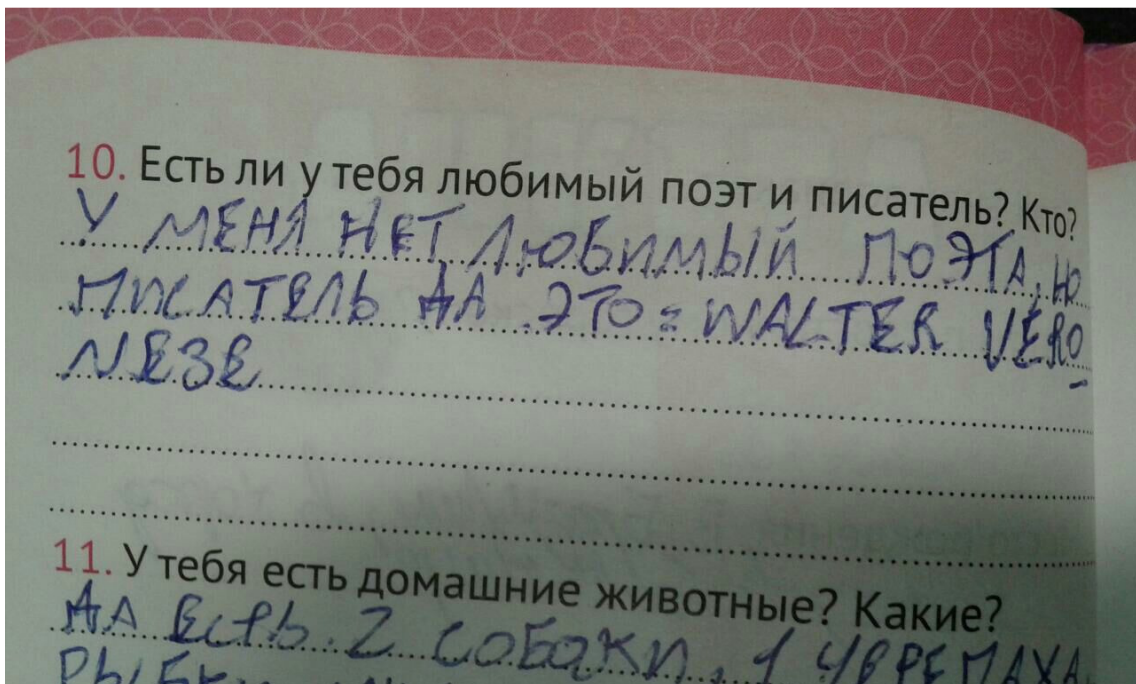 10. Есть ли у тебя любимый поэт и писатель? Кто?
У МЕНЯ НЕТ ЛЮБИМЫЙ ПОЭТА, НО
ПИСАТЕЛЬ ДА ЭТО = WALTER VERO_
NEЗE
11. У тебя есть домашние животные? Какие?
ДА ЕСТЬ. 2 СОБАКИ, 1 ЧЕРЕПАХА